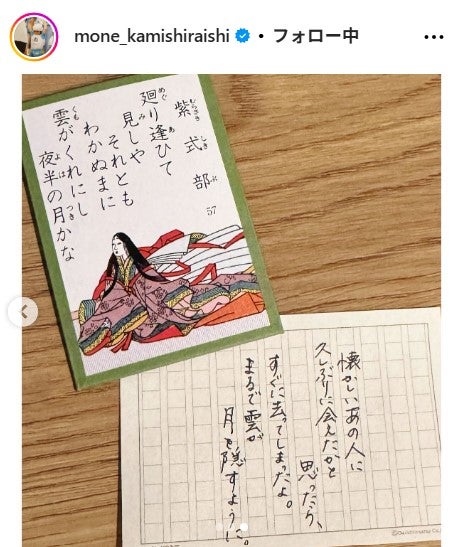 mone_kamishiraishi • フォロー中
紫式部
むらさきしきぶ
57
廻り逢ひて
めぐ あ
見しや
み
それとも
わかぬまに
雲がくれにし
くも
夜半の月かな
よは つき
懐かしいあの人に
久しぶりに会えたかと
思ったら、
すぐに去ってしまったよ。
まるで雲が
月を隠すように。